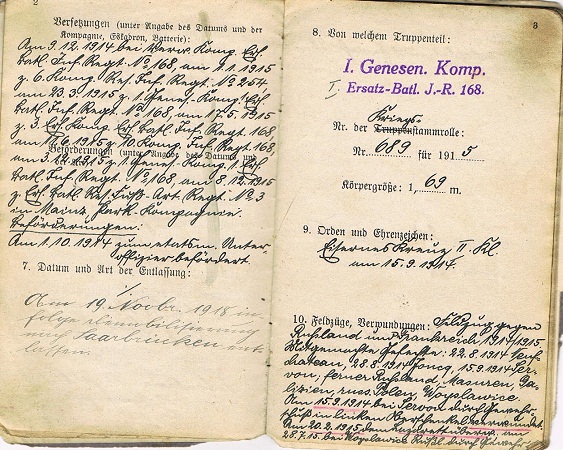 2
Versetzungen (unter Angabe des Datums und der
Kompagnie, Eskadron, Batterie):
Am 9.12.1914 bei Komp. Ers.
Batl. Inf. Regt. No 168, am 1.1.1915
z. 6. Komp. Res. Inf. Regt. No 254
am 23.3.1915 z. 1. Genes.-Komp. Ers.
Batl. Inf. Regt. No 168, am 17.5.1915
z. 3. Ers. Komp. Ers. Batl. Inf. Regt. 168,
am 1915 z. 10. Komp. Inf. Regt. 168
Beförderungen (unter Angabe des Datums und
am 3.12.1915 z. 1. Genes. Komp. 1. Ers.
Batl. Inf. Regt. No 168, am 8.12.1915
z. Ers. Batl. Res. Fuß-Art. Regt. No 3
in Mainz Park-Kompagnie.
Beförderungen:
Am 1.10.1914 zum etatsm. Unter-
offizier befördert
7. Datum und Art der Entlassung:
Am 19. Novbr. 1918 in
folge demobilisierung
nach Saarbrücken ent
lassen.
3
8. Von welchem Truppenteil:
I. Genesen. Komp.
I. Ersatz-Batl. J.-R. 168.
Kriegs-
Nr. der Truppenstammrolle:
Nr. 689 für 1915
Körpergröße: 1, 69 m.
9. Orden und Ehrenzeichen:
Eisernes Kreuz II. Kl.
am 15.9.1914.
10. Feldzüge, Verwundungen: Feldzug gegen
Rußland und Frankreich 1914/1915
Mitgemachte Gefechte: 22.8.1914 Neuf-
chateau, 28.8.1914 15.9.1914 Ser-
von; ferner Rußland, Masuren, Ga-
lizien, russ. Polen, Woyslawice.
Am 15.9.1914 bei Servon durch Gewehr-
schuß in linken Oberschenkel verwundet.
Am 20.2.1915 dem Lazarett überw. am
28.7.15. bei Woyslawice Rußl. durch Gewehr-